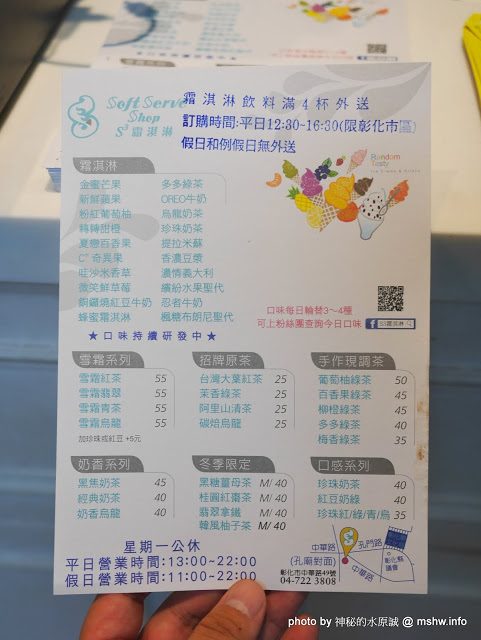 Soft Serve
Shop
S³霜淇淋
霜淇淋飲料滿4杯外送
訂購時間:平日12:30-16:30(限彰化市區)
假日和例假日無外送
Random
Tasty
霜淇淋
金蜜芒果 多多綠茶
新鮮蘋果 OREO牛奶
粉紅葡萄柚 烏龍奶茶
轉轉甜橙 珍珠奶茶
夏戀百香果 提拉米蘇
C⁺⁺奇異果 香濃豆漿
哇沙米香草 濃情義大利
微笑鮮草莓 繽紛水果聖代
銅鑼燒紅豆牛奶 忍者牛奶
蜂蜜霜淇淋 楓糖布朗尼聖代
★口味持續研發中★
口味每日輪替3~4種
可上粉絲團查詢今日口味 S3霜淇淋
雪霜系列
雪霜紅茶 55
雪霜翡翠 55
雪霜青茶 55
雪霜烏龍 55
加珍珠或紅豆 +5元
招牌原茶
台灣大葉紅茶 25
茉香綠茶 25
阿里山清茶 25
碳焙烏龍 25
手作現調茶
葡萄柚綠茶 50
百香果綠茶 45
柳橙綠茶 45
多多綠茶 40
梅香綠茶 35
奶香系列
黑焦奶茶 45
經典奶茶 40
奶香烏龍 40
冬季限定
黑糖薑母茶 M/ 40
桂圓紅棗茶 M/ 40
翡翠拿鐵 M/ 40
韓風柚子茶 M/ 40
口感系列
珍珠奶茶 40
紅豆奶綠 40
珍珠紅/綠/青/烏 35
星期一公休
平日營業時間:13:00~22:00
假日營業時間:11:00~22:00
中華路
(孔廟對面)
彰化市中華路49號
04-722 3808
孔門路
彰化縣
議會
中華路
photo by 神秘的水原誠 @ mshw.info